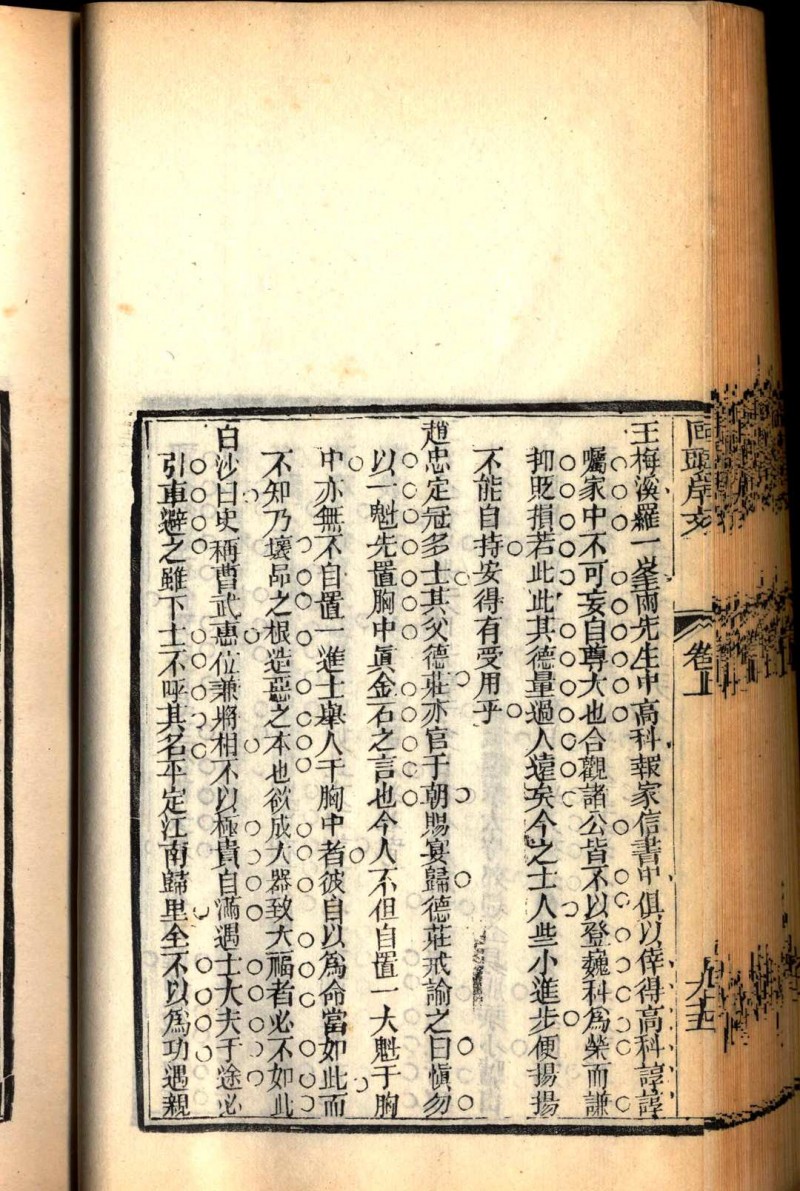 回頭岸文
卷上
九十五
王梅溪羅一峯兩先生中高科報家信書中俱以倖得高科諄諄
囑家中不可妄自尊大也合觀諸公皆不以登巍科為榮而謙
抑貶損若此此其德量過人遠矣今之士人些小進步便揚揚
不能自持安得有受用乎
趙忠定冠多士其父德莊亦官于朝賜宴歸德莊戒諭之曰愼勿
以一魁先置胸中眞金石之言也今人不但自置一大魁于胸
中亦無不自置一進士舉人于胸中者彼自以為命當如此而
不知乃壞品之根造惡之本也欲成大器致大福者必不如此
白沙曰史稱曹武惠位謙將相不以極貴自滿遇士大夫于途必
引車避之雖下士不呼其名平定江南歸里全不以為功遇親